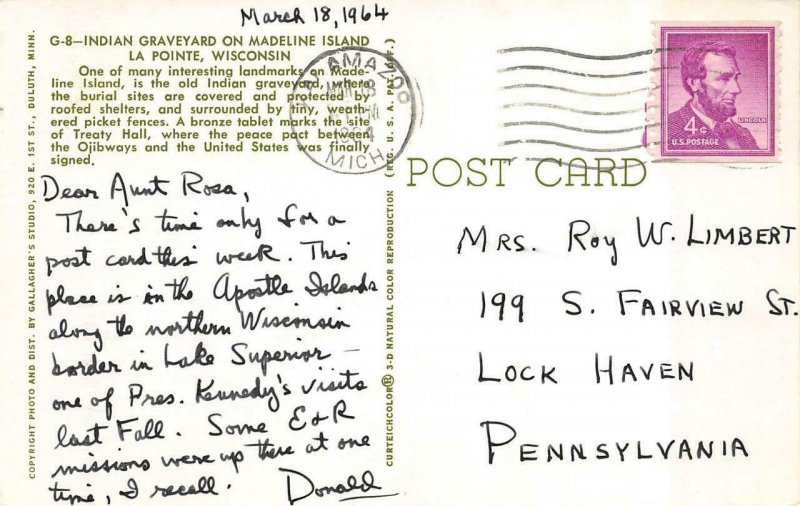 March 18, 1964
G-8—INDIAN GRAVEYARD ON MADELINE ISLAND
LA POINTE, WISCONSIN
One of many interesting landmarks on Made-
line Island, is the old Indian graveyard, where
the burial sites are covered and protected by
roofed shelters, and surrounded by tiny, weath-
ered picket fences. A bronze tablet marks the site
of Treaty Hall, where the peace pact between
the Ojibways and the United States was finally
signed.
Dear Aunt Rosa,
There's time only for a
post card this week. This
place is in the Apostle Islands
along the northern Wisconsin
border in Lake Superior —
one of Pres. Kennedy's visits
last Fall. Some E & R
missions were up there at one
time, I recall. Donald
COPYRIGHT PHOTO AND DIST. BY GALLAGHER'S STUDIO, 920 E. 1ST ST., DULUTH, MINN.
CURTEICHCOLOR® 3-D NATURAL COLOR REPRODUCTION (REG. U. S. A. PAT. OFF.)
KALAMAZOO
MICH.
1964
POST CARD
LINCOLN
4¢
U.S. POSTAGE
MRS. ROY W. LIMBERT
199 S. FAIRVIEW ST.
LOCK HAVEN
PENNSYLVANIA